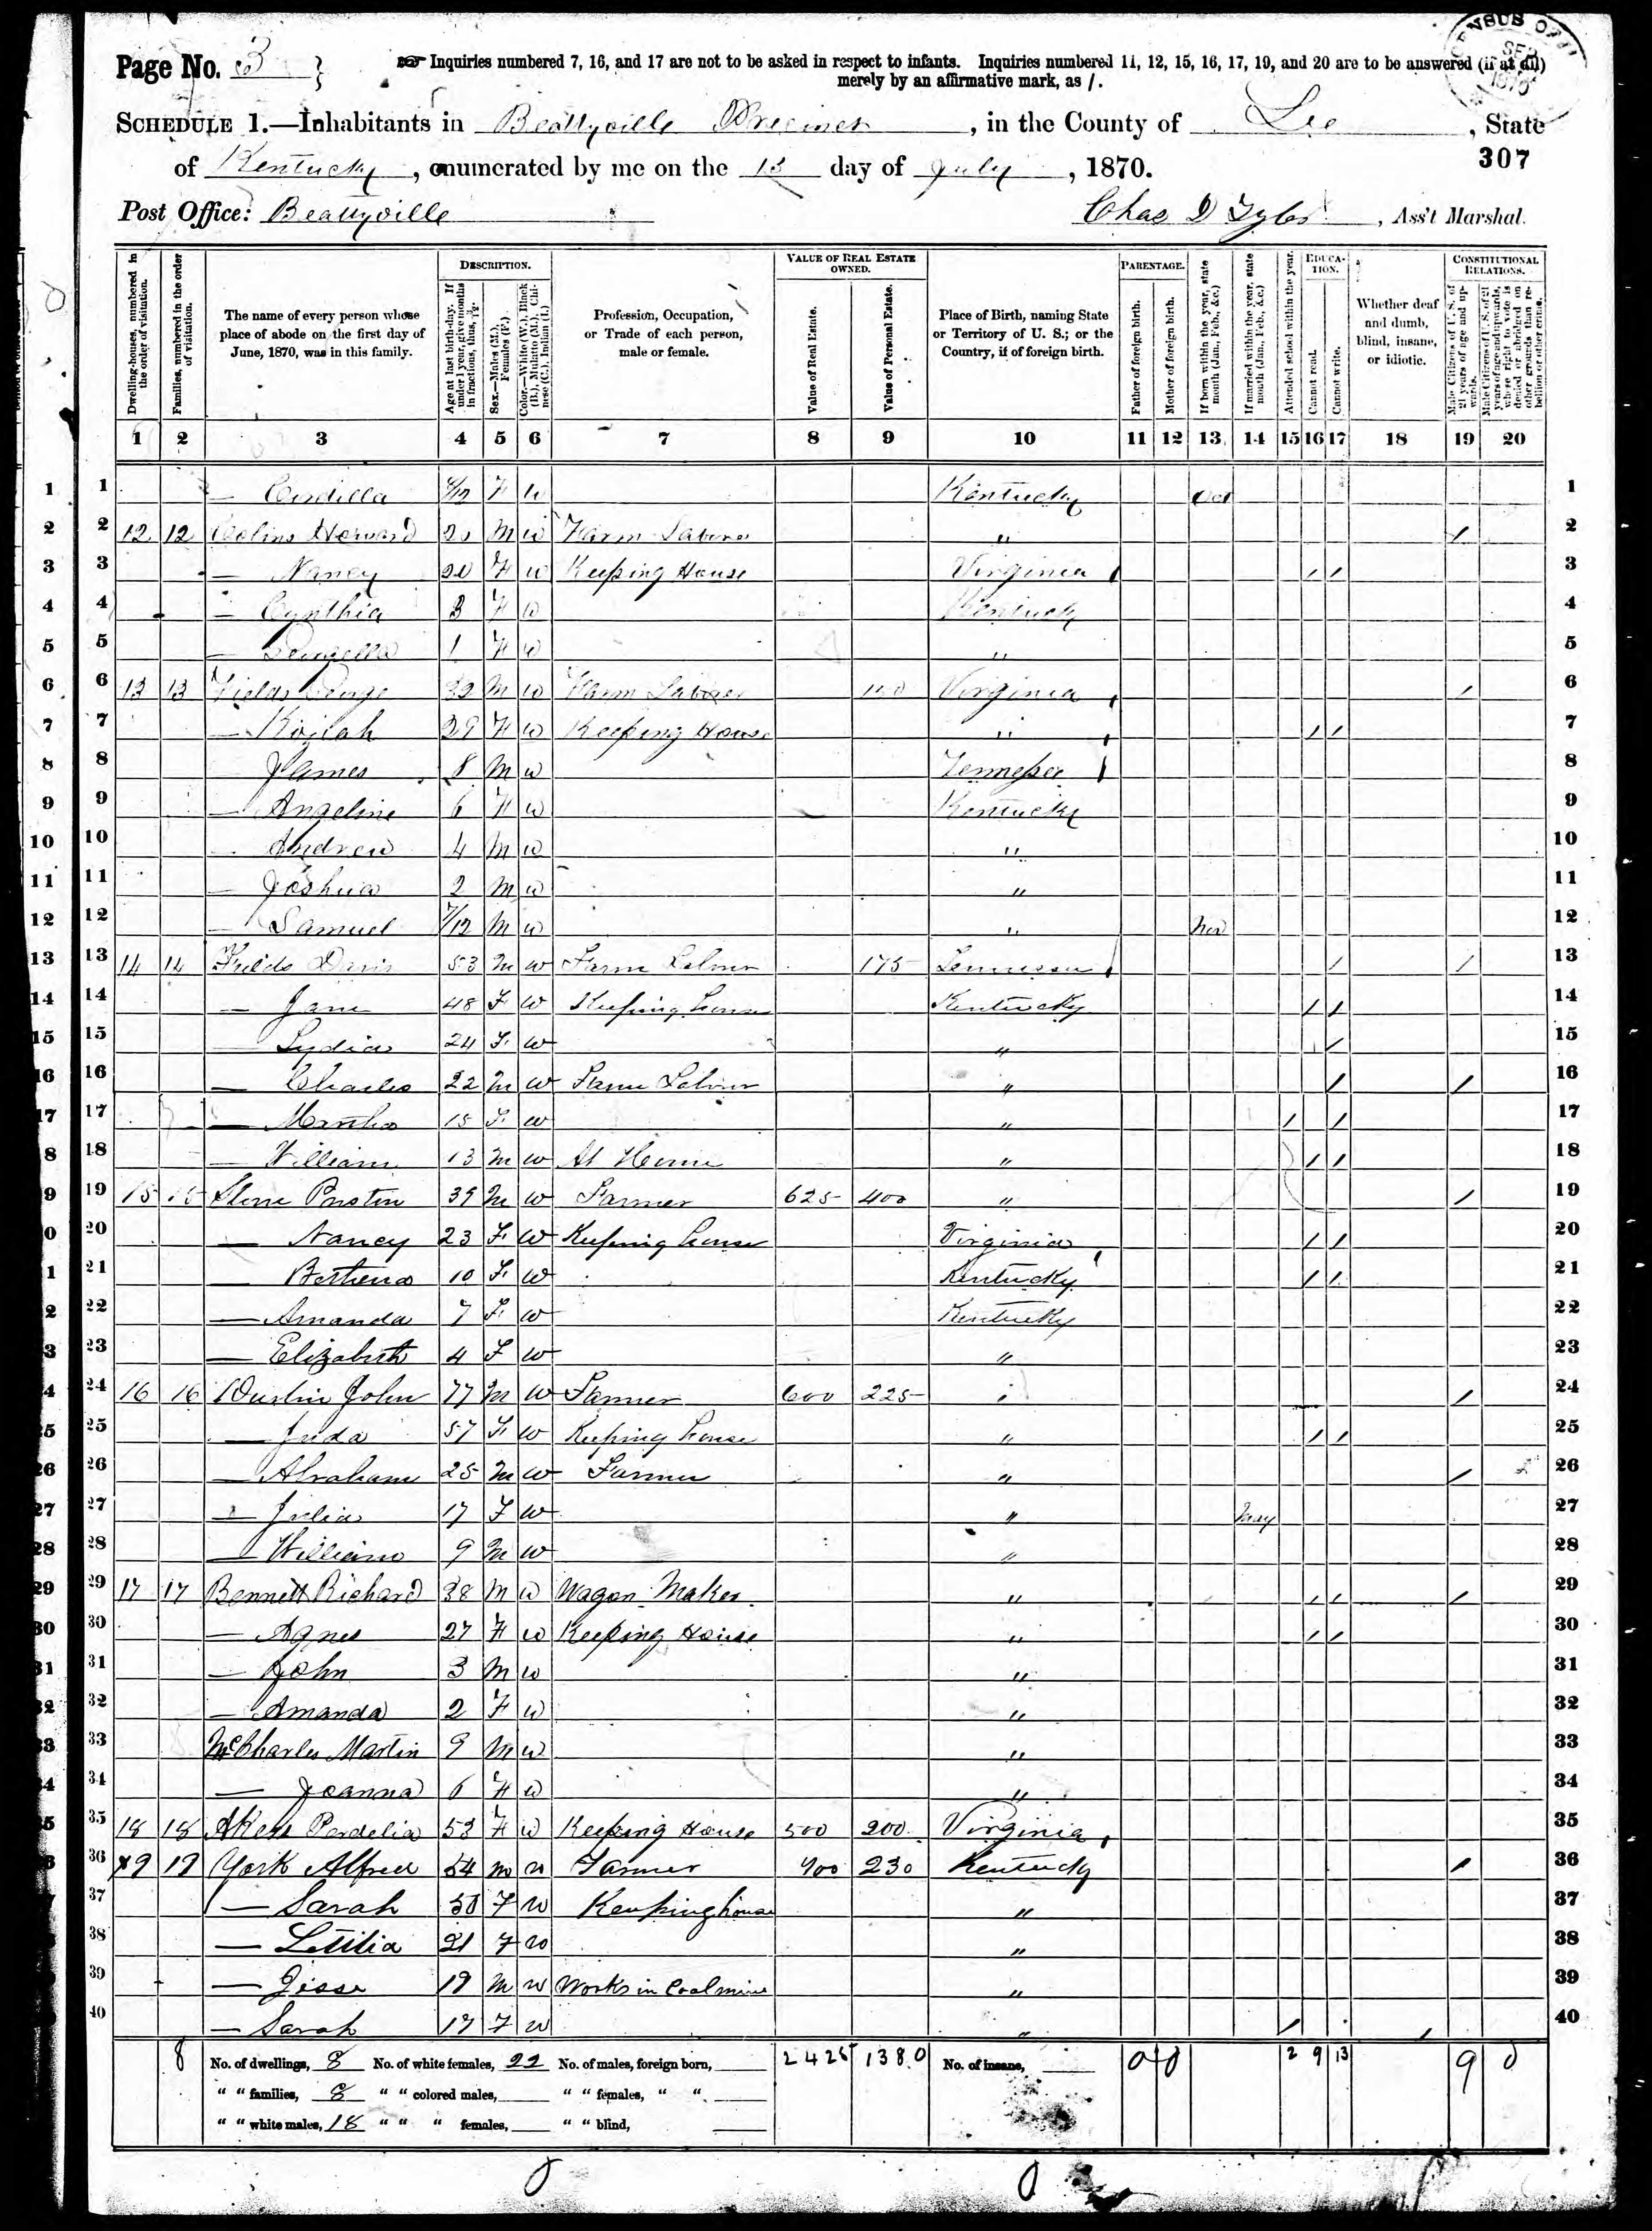 Page No. 3
Inquiries numbered 7, 16, and 17 are not to be asked in respect to infants. Inquiries numbered 11, 12, 15, 16, 17, 19, and 20 are to be answered (if at all)
merely by an affirmative mark, as /.
SCHEDULE 1.—Inhabitants in Beattyville Precinct, in the County of Lee, State
307
of Kentucky, enumerated by me on the 13 day of July, 1870.
Post Office: Beattyville Chas D Tyler, Ass't Marshal.
Dwelling-houses, numbered in the order of visitation.
Families, numbered in the order of visitation.
The name of every person whose place of abode on the first day of June, 1870, was in this family.
DESCRIPTION.
Age at last birth-day. If under 1 year, give months in fractions, thus, 3/12.
Sex.—Males (M.), Females (F.)
Color.—White (W.), Black (B.), Mulatto (M.), Chinese (C.), Indian (I.)
Profession, Occupation, or Trade of each person, male or female.
VALUE OF REAL ESTATE OWNED.
Value of Real Estate.
Value of Personal Estate.
Place of Birth, naming State or Territory of U. S.; or the Country, if of foreign birth.
PARENTAGE.
Father of foreign birth.
Mother of foreign birth.
If born within the year, state month (Jan., Feb., &c.)
If married within the year, state month (Jan., Feb., &c.)
Attended school within the year.
EDUCATION.
Cannot read.
Cannot write.
Whether deaf and dumb, blind, insane, or idiotic.
CONSTITUTIONAL RELATIONS.
Male Citizens of U. S. of 21 years of age and upwards.
Male Citizens of U. S. of 21 years of age and upwards, whose right to vote is denied or abridged on other grounds than rebellion or other crime.
1 2 3 4 5 6 7 8 9 10 11 12 13 14 15 16 17 18 19 20
1 — F W Kentucky Oct 1
2 12 12 Colins M W Farm Laborer " / 2
3 — Nancy 20 F W Keeping House Virginia / / 3
4 — Cynthia 3 F W Kentucky 4
5 1 F W " 5
6 13 13 Fields George M W Farm Laborer Virginia / 6
7 — 29 F W Keeping House " / / 7
8 — James 8 M W Tennessee 8
9 — Angeline 6 F W Kentucky 9
10 — Andrew 4 M W " 10
11 — Joshua 2 M W " 11
12 — Samuel 7/12 M W " Nov 12
13 14 14 Fields Davis 53 M W Farm Laborer 175 Tennessee / / 13
14 — Jane 48 F W Keeping house Kentucky / / 14
15 — Lydia 24 F W " / 15
16 — Charles 22 M W Farm Laborer " / / 16
17 — Martha 15 F W " / / 17
18 — William 13 M W At Home " / / 18
19 15 15 39 M W Farmer 625 400 " / 19
20 — Nancy 23 F W Keeping house Virginia / / 20
21 — 10 F W Kentucky / / 21
22 — Amanda 7 F W Kentucky 22
23 — Elizabeth 4 F W " 23
24 16 16 John 77 M W Farmer 600 225 " / 24
25 — Juda 57 F W Keeping house " / / 25
26 — Abraham 25 M W Farmer " / 26
27 — Julia 17 F W " May 27
28 — William 9 M W " 28
29 17 17 Bennett Richard 38 M W Wagon Maker " / / / 29
30 — Agnes 27 F W Keeping House " / / 30
31 — John 3 M W " 31
32 — Amanda 2 F W " 32
33 McCharles Martin 9 M W " 33
34 — Joanna 6 F W " 34
35 18 18 Akers Perdelia 53 F W Keeping House 500 200 Virginia 35
36 19 19 York Alfred 54 M W Farmer 700 230 Kentucky / 36
37 — Sarah 50 F W Keeping house " 37
38 — Letitia 21 F W " 38
39 — Jesse 19 M W Works in Coal mine " 39
40 — Sarah 17 F W " / 40
8 No. of dwellings, 8 No. of white females, 22 No. of males, foreign born, 2425 1380 No. of insane, 0 0 2 9 13 9 0
" " families, 8 " " colored males, " " females, " "
" " white males, 18 " " " females, " " blind,